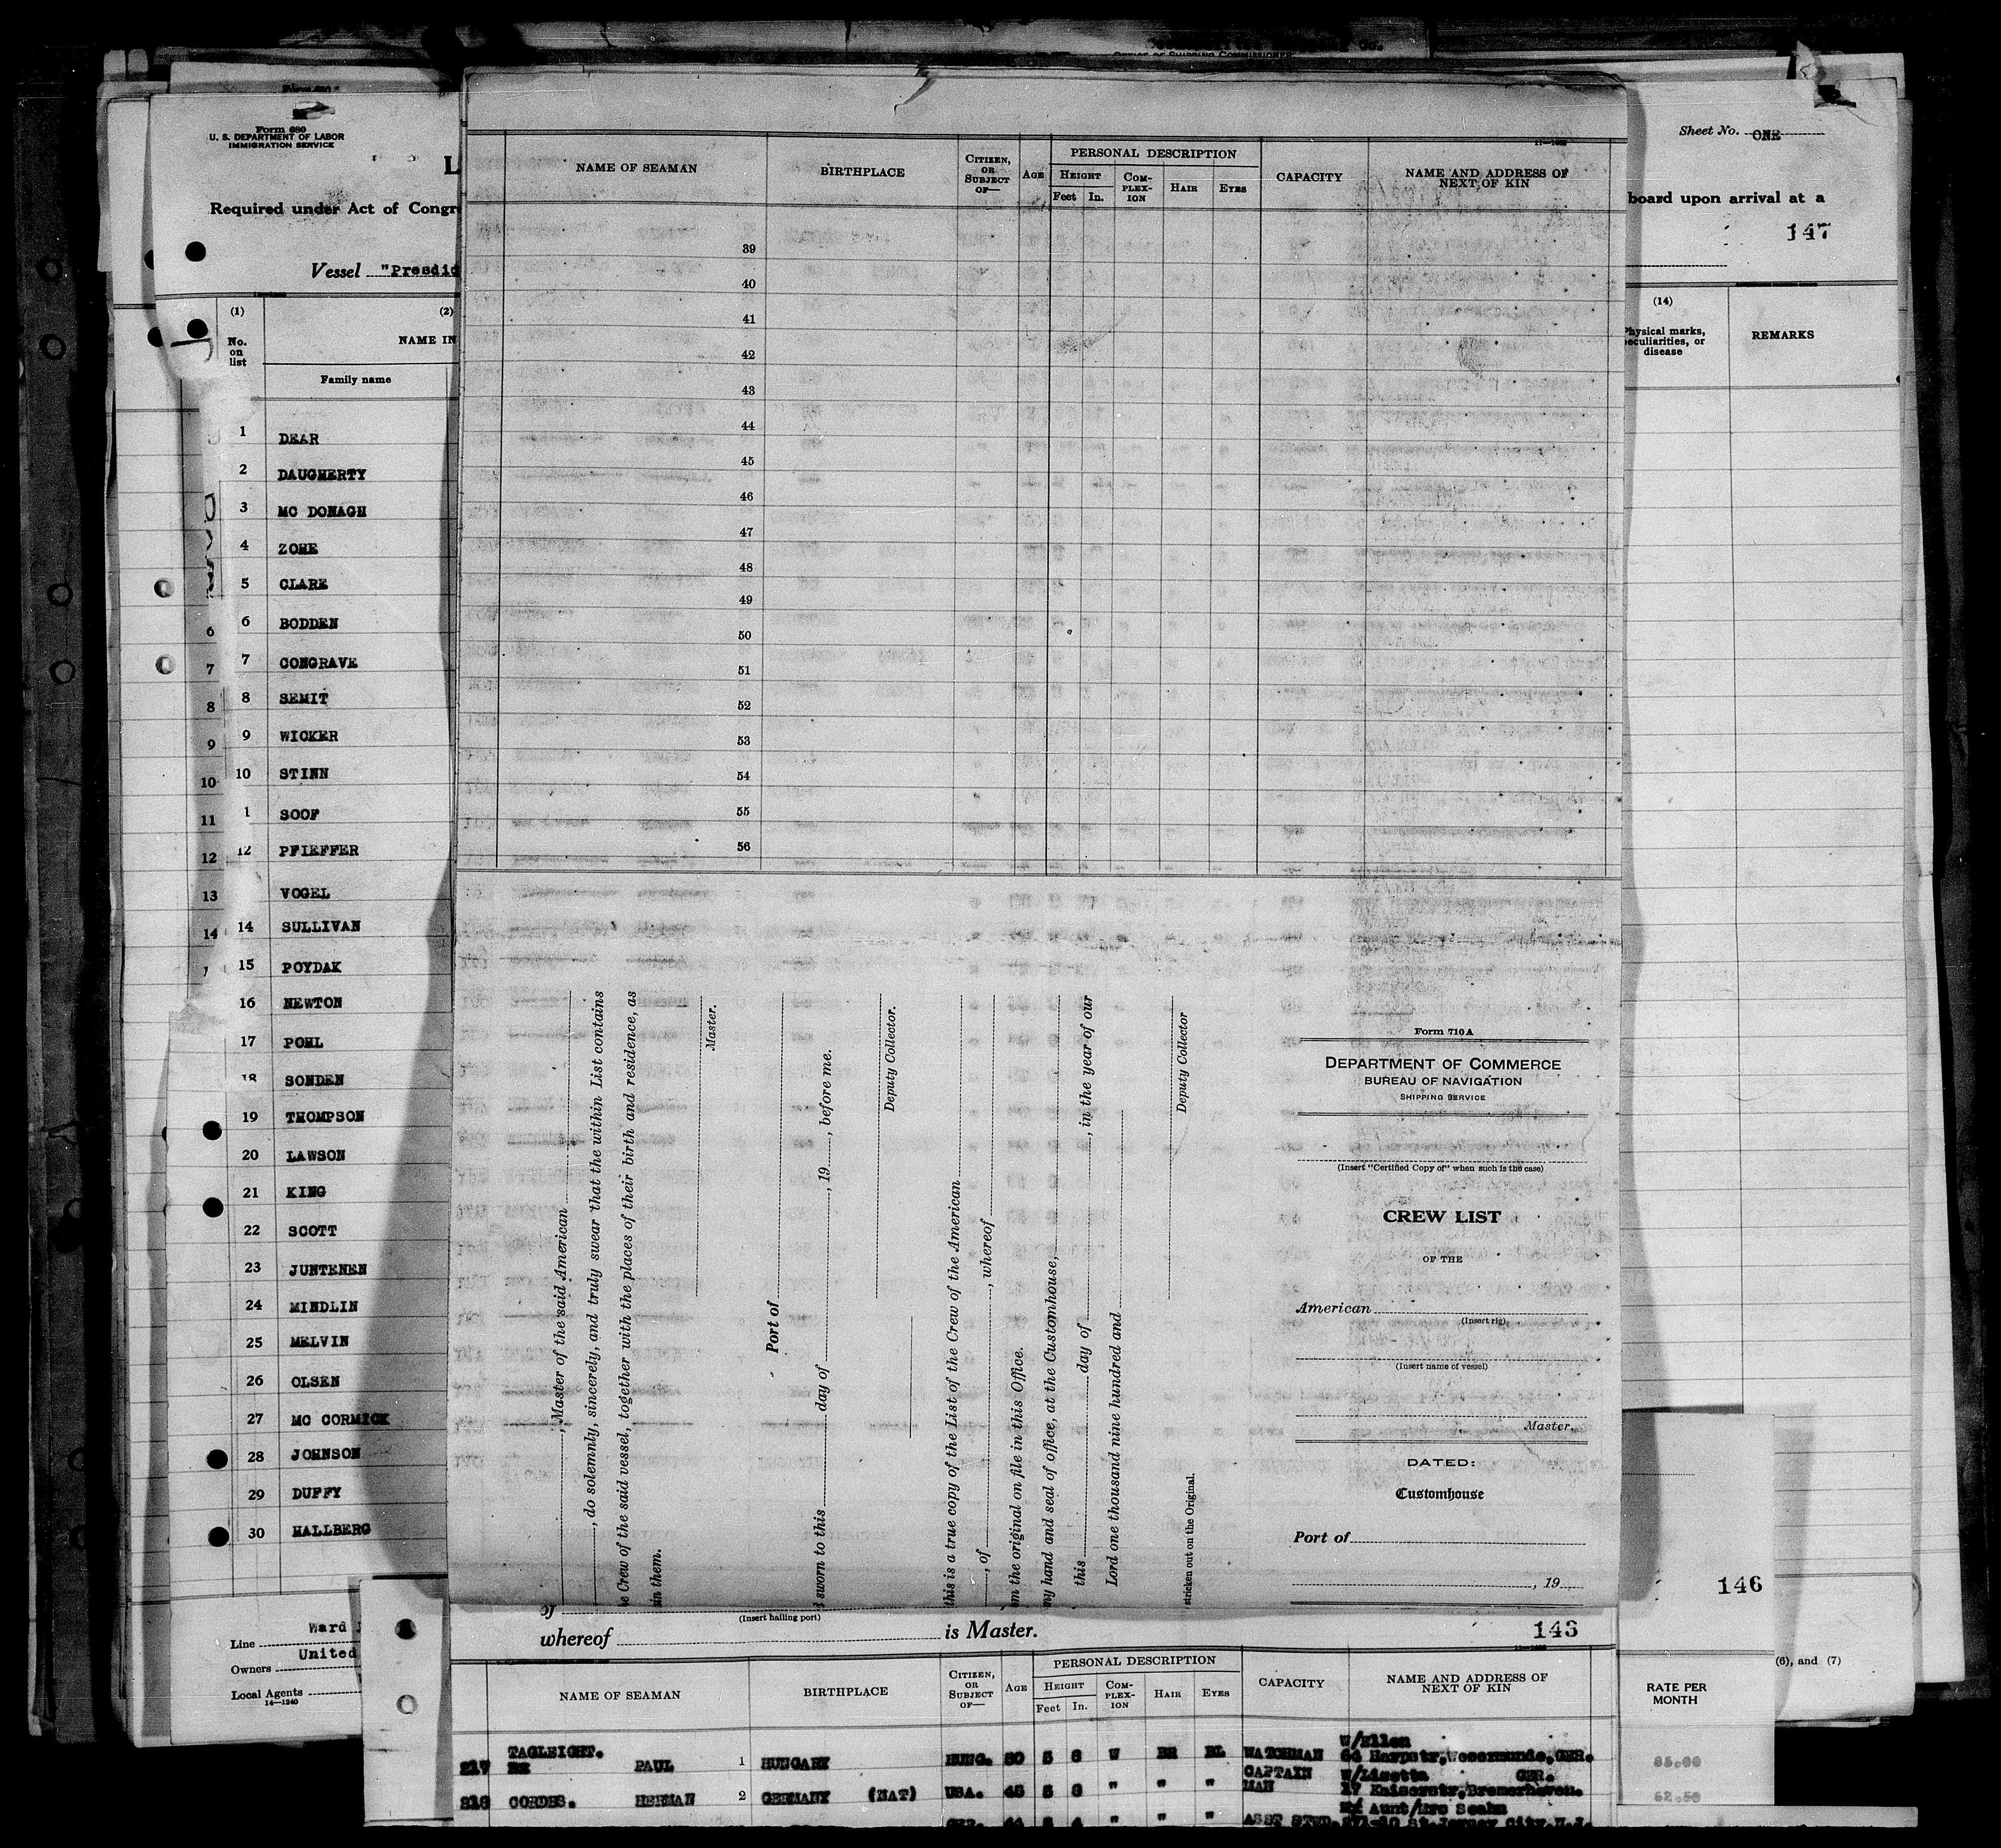 Form 680
U. S. DEPARTMENT OF LABOR
IMMIGRATION SERVICE
Sheet No. ONE
L
Required under Act of Congr
board upon arrival at a
147
Vessel "Presdid
(1)
(2)
No.
on
list
NAME IN
Family name
(14)
Physical marks,
peculiarities, or
disease
REMARKS
1 DEAR
2 DAUGHERTY
3 MC DONAGH
4 ZOHE
5 CLARE
6 BODDEN
7 CONGRAVE
8 SEMIT
9 WICKER
10 STINN
1 SOOF
12 PFIEFFER
VOGEL
14 SULLIVAN
15 POYDAK
16 NEWTON
17 POHL
18 SONDEN
19 THOMPSON
20 LAWSON
21 KING
22 SCOTT
23 JUNTENEN
24 MINDLIN
25 MELVIN
26 OLSEN
27 MC CORMICK
28 JOHNSON
29 DUFFY
30 HALLBERG
6
7
8
9
10
11
12
13
14
Line Ward
Owners United
Local Agents
14—1240
NAME OF SEAMAN
BIRTHPLACE
CITIZEN,
OR
SUBJECT
OF—
AGE
PERSONAL DESCRIPTION
HEIGHT
Feet In.
COM-
PLEX-
ION
HAIR
EYES
CAPACITY
NAME AND ADDRESS OF
NEXT OF KIN
39
40
41
42
43
44
45
46
47
48
49
50
51
52
53
54
55
56
, Master of the said American
, do solemnly, sincerely, and truly swear that the within List contains
e Crew of the said vessel, together with the places of their birth and residence, as
in them.
Master.
Port of
d sworn to this day of , 19 , before me.
Deputy Collector.
this is a true copy of the List of the Crew of the American
, of , whereof
om the original on file in this Office.
my hand and seal of office, at the Customhouse,
this day of , in the year of our
Lord one thousand nine hundred and
Deputy Collector
stricken out on the Original.
Form 710A
DEPARTMENT OF COMMERCE
BUREAU OF NAVIGATION
SHIPPING SERVICE
(Insert "Certified Copy of" when such is the case)
CREW LIST
OF THE
American
(Insert rig)
(Insert name of vessel)
Master.
DATED:
Customhouse
Port of
, 19
146
of
(Insert hailing port)
whereof is Master.
143
(6), and (7)
NAME OF SEAMAN
BIRTHPLACE
CITIZEN,
OR
SUBJECT
OF—
AGE
PERSONAL DESCRIPTION
HEIGHT
Feet In.
COM-
PLEX-
ION
HAIR
EYES
CAPACITY
NAME AND ADDRESS OF
NEXT OF KIN
RATE PER
MONTH
TAGLEIGHT. W/Ellen
217 PAUL 1 HUNGARY HUNG. 30 5 8 W BR BL WATCHMAN 64 Harpstr,Wesermunde,GER. 85.00
CAPTAIN W/Lisetta GER.
218 CORDES. HERMAN 2 GERMANY (NAT) USA. 45 5 8 " " " MAN 17 Kaiserstr,Bremerhaven. 62.50
Aunt/Mrs Seahm
GER. 44 5 4 " " " ASST STWD. St.Jersey City,N.J.